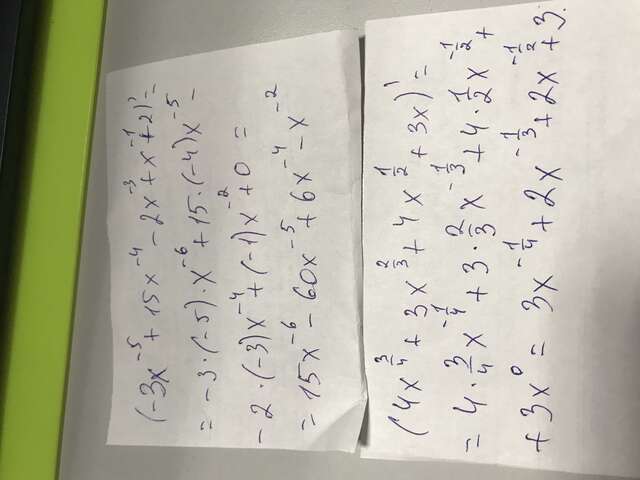 (-3x⁻⁵ + 15x⁻⁴ - 2x⁻³ + x⁻¹ + 2)' =
= -3·(-5)·x⁻⁶ + 15·(-4)x⁻⁵ -
- 2·(-3)x⁻⁴ + (-1)x⁻² + 0 =
= 15x⁻⁶ - 60x⁻⁵ + 6x⁻⁴ - x⁻²
(4x^(3/4) + 3x^(2/3) + 4x^(1/2) + 3x)' =
= 4·3/4x^(-1/4) + 3·2/3x^(-1/3) + 4·1/2x^(-1/2) +
+ 3x⁰ = 3x^(-1/4) + 2x^(-1/3) + 2x^(-1/2) + 3.